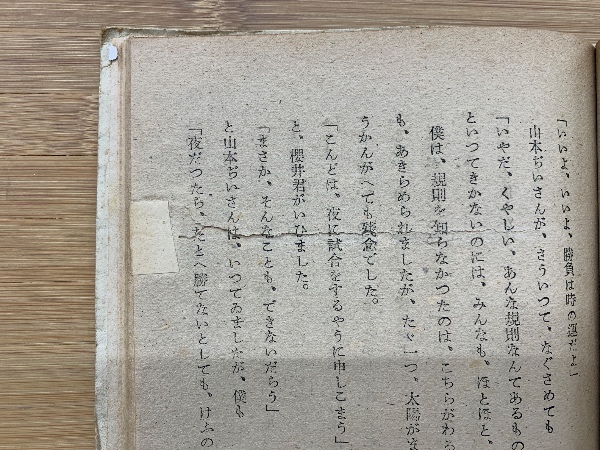 「いいよ、いいよ、勝負は時の運だよ」
山本ぢいさんが、さういつて、なぐさめても
「いやだ、くやしい、あんな規則なんてあるもの
といつてきかないのには、みんなも、ほとほと、
僕は、規則を知らなかつたのは、こちらがわる
も、あきらめられましたが、たゞ一つ、太陽が
うかんがへても残念でした。
「こんどは、夜に試合をするやうに申しこまう」
と、櫻井君がいひました。
「まさか、そんなことも、できないだらう」
と山本ぢいさんは、いつてゐましたが、僕も
「夜だつたら、たとへ勝てないとしても、けふの